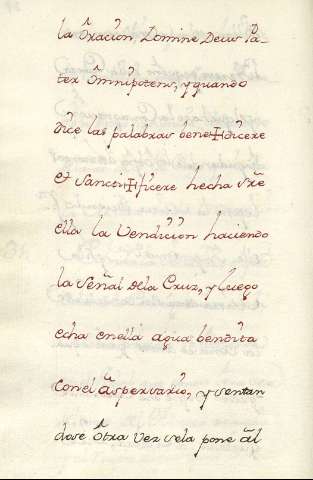 la Oracion Domine Deus Pa-
ter Omnipotens, y quando
dice las palabras bene✠dicere
et sancti✠ficere hecha sre
ella la Vendicion haciendo
la Señal dela Cruz, y luego
echa enella agua bendita
conel Aspersario, y sentan
dose Otra Vez se la pone al